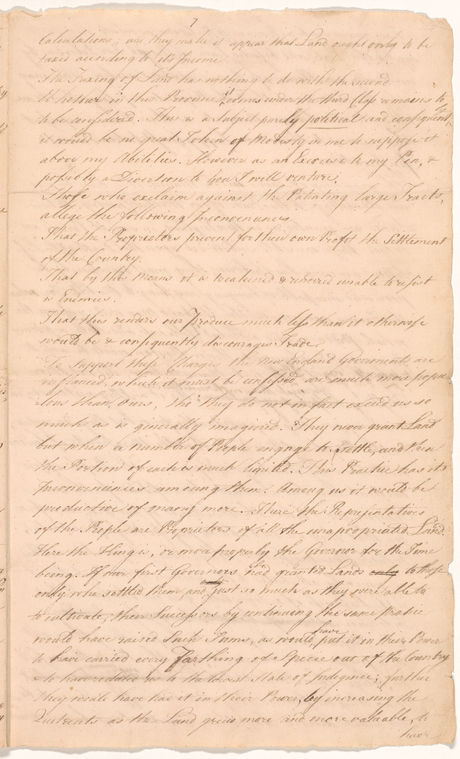 7
Calculations, nor they make it appear that Land ought only to be
taxed according to its Income.
The Taxing of Land has nothing to do with the second
to be considered. This is a Subject purely political and consequently
it would be no great Token of Modesty in me to suppose it
above my Abilities. However as an Exercise to my Pen, &
possibly a Diversion to you I will venture.
Those who exclaim against the Patenting large Tracts,
alledge the following Inconveniences.
That the Proprietors prevent for their own Profit the Settlement
of the Country.
That by this Means it is weakened & rendered unable to resist
Enemies.
That this renders our Produce much less than it otherwise
would be & consequently discourages Trade.
To support these Charges the New England Governments are
which it must be confessed, are much more popu
lous than ours, tho' they do not in fact exceed us so
much as is generally imagined. They never grant Land
but when a number of People engage to settle, and then
the Portion of each is much limited. This Practice has its
Inconveniences among them: Among us it would be
productive of many more. There the Representatives
of the People are Proprietors of all the unapropriated Land.
Here the King is, or more properly the Governor for the Time
being. If our first Governors had granted Lands only to those
only who settled them and just so much as they were able
to cultivate, their Successors by continuing the same
would have raised such Sums, as would have put it in their Power
to have carried every Farthing of Specie out of the Country
& to have reduced us to the lowest State of Indigence; further
They would have had it in their Power, by increasing the
Quitrents as the Land grew more and more valuable, to
have